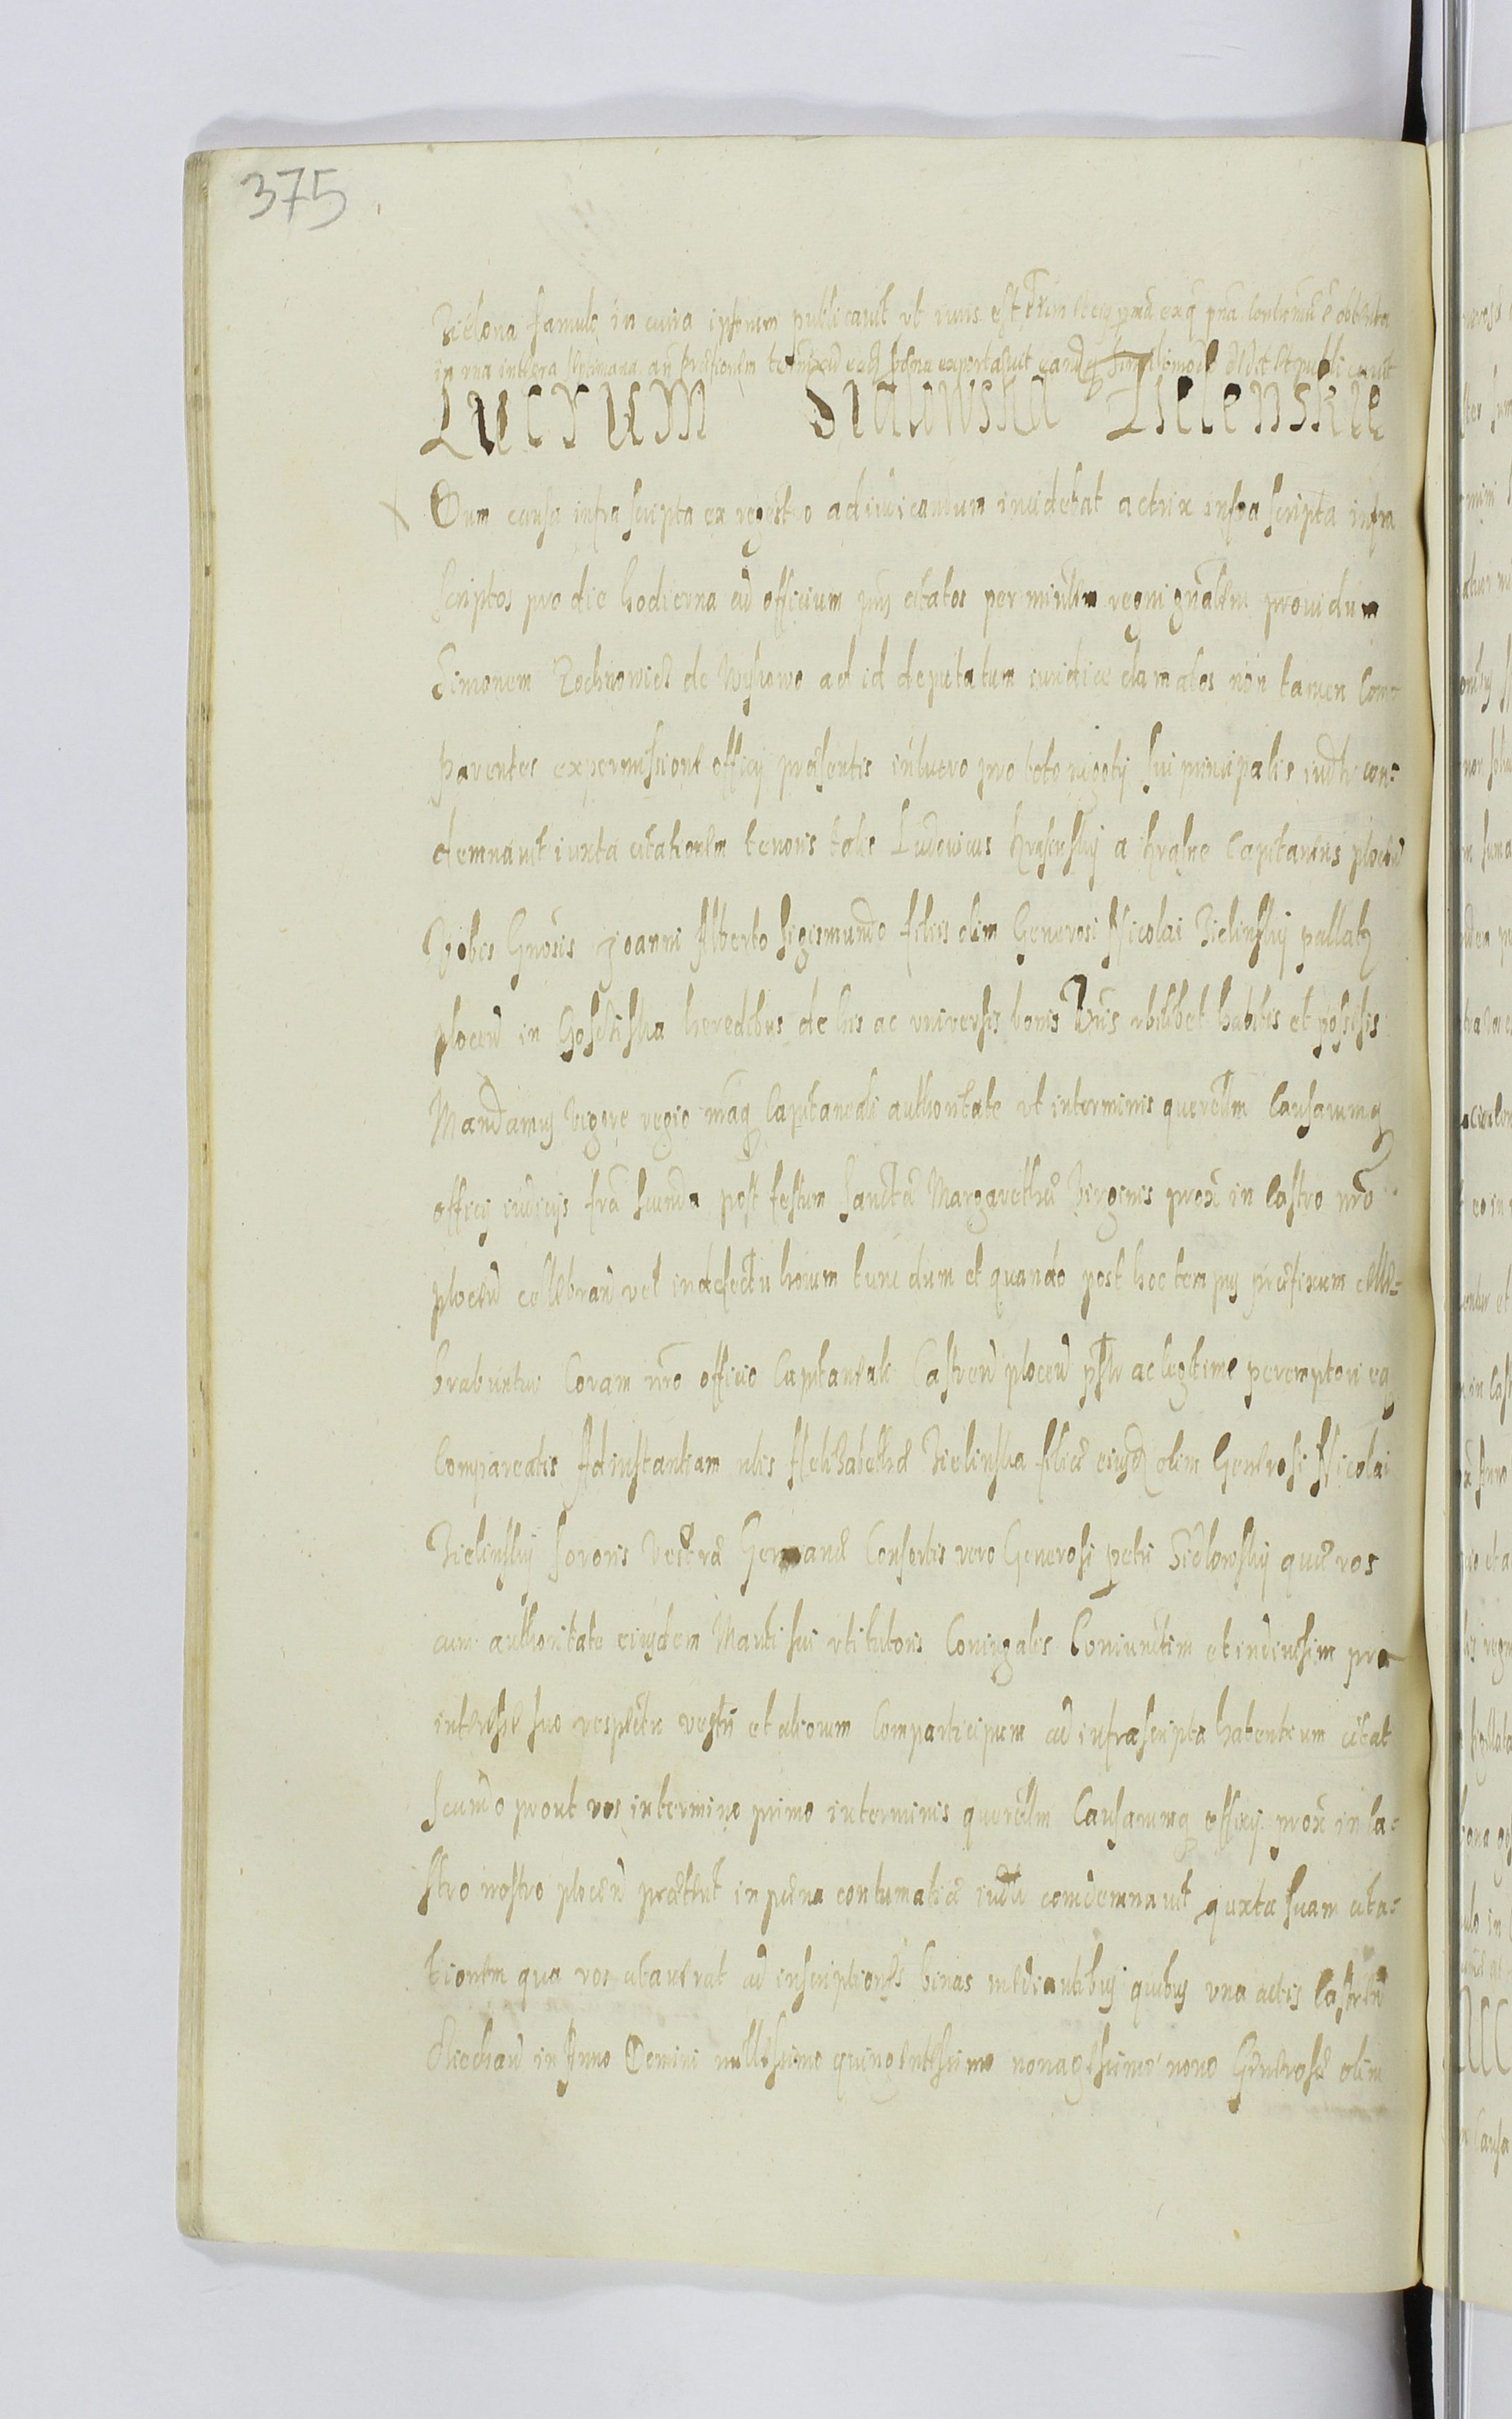 375
Zielona famulo in curia ipsorum publicavit ut iuris est
in una integra septimana an
Lucrum Sialowska Zielenskie
x Dum causa infra scripta ex regestro adiudicandum incidebat actrix infra scripta infra
scriptos pro die hodierna ad officium pns citatos per minlem regni gnalem providum
Simonem Zochnowicz de ad id deputatum iuridice clamatos non tamen Com=
parentes ex permissione officij praesentis in lucro pro toto negotij sui principalis iudtr con=
demnavit iuxta citationem tenoris talis Ludovicus Krasinskij a Krasne Capitaneus plocen
Vobis Gnosis Joanni Alberto Sigismundo filiis olim Generosi Nicolai Zielinskij pallat
plocen in haeredibus de his ac universis bonis vris ubilibet habitis et possessis
Mandamus vigore regio mag Capitaneali authoritate ut in terminis querelm Causarumq
officij iudicijs fra scunda post festum Sanctae Margarethae Virginis prox in Castro nro
plocen cellebran vel in defectu horum tunc dum et quando post hoc tempus praefixum celle=
brabuntur Coram nro officio Capitaneali Castren plocen pstr ac legitime peremptorieq
Compareatis Ad instantiam nlis Aelizabethae Zielinska filiae eiusd olim Generosi Nicolai
Zielinskij sororis vestrae Germanae Consortis vero Generosi petri Sielowskij quae vos
cum authoritate eiusdem Mariti sui uti tutoris Coniugalis Coniunctim et indivisim pro
interesse suo respectu vestri et aliorum Comparticipum ad infrascripta habentium citat
scundo prout vos in termino primo in terminis querelm Causarumq officij prox in Ca=
stro nostro plocen in paena contumatiae iudtr condemnavit juxta suam cita=
tionem qua vos citaverat ad inscriptiones binas mediantibus quibus una actis Castren
Ciechan in Anno Domini millesimo quingentesimo nonagesimo nono Generosae olim